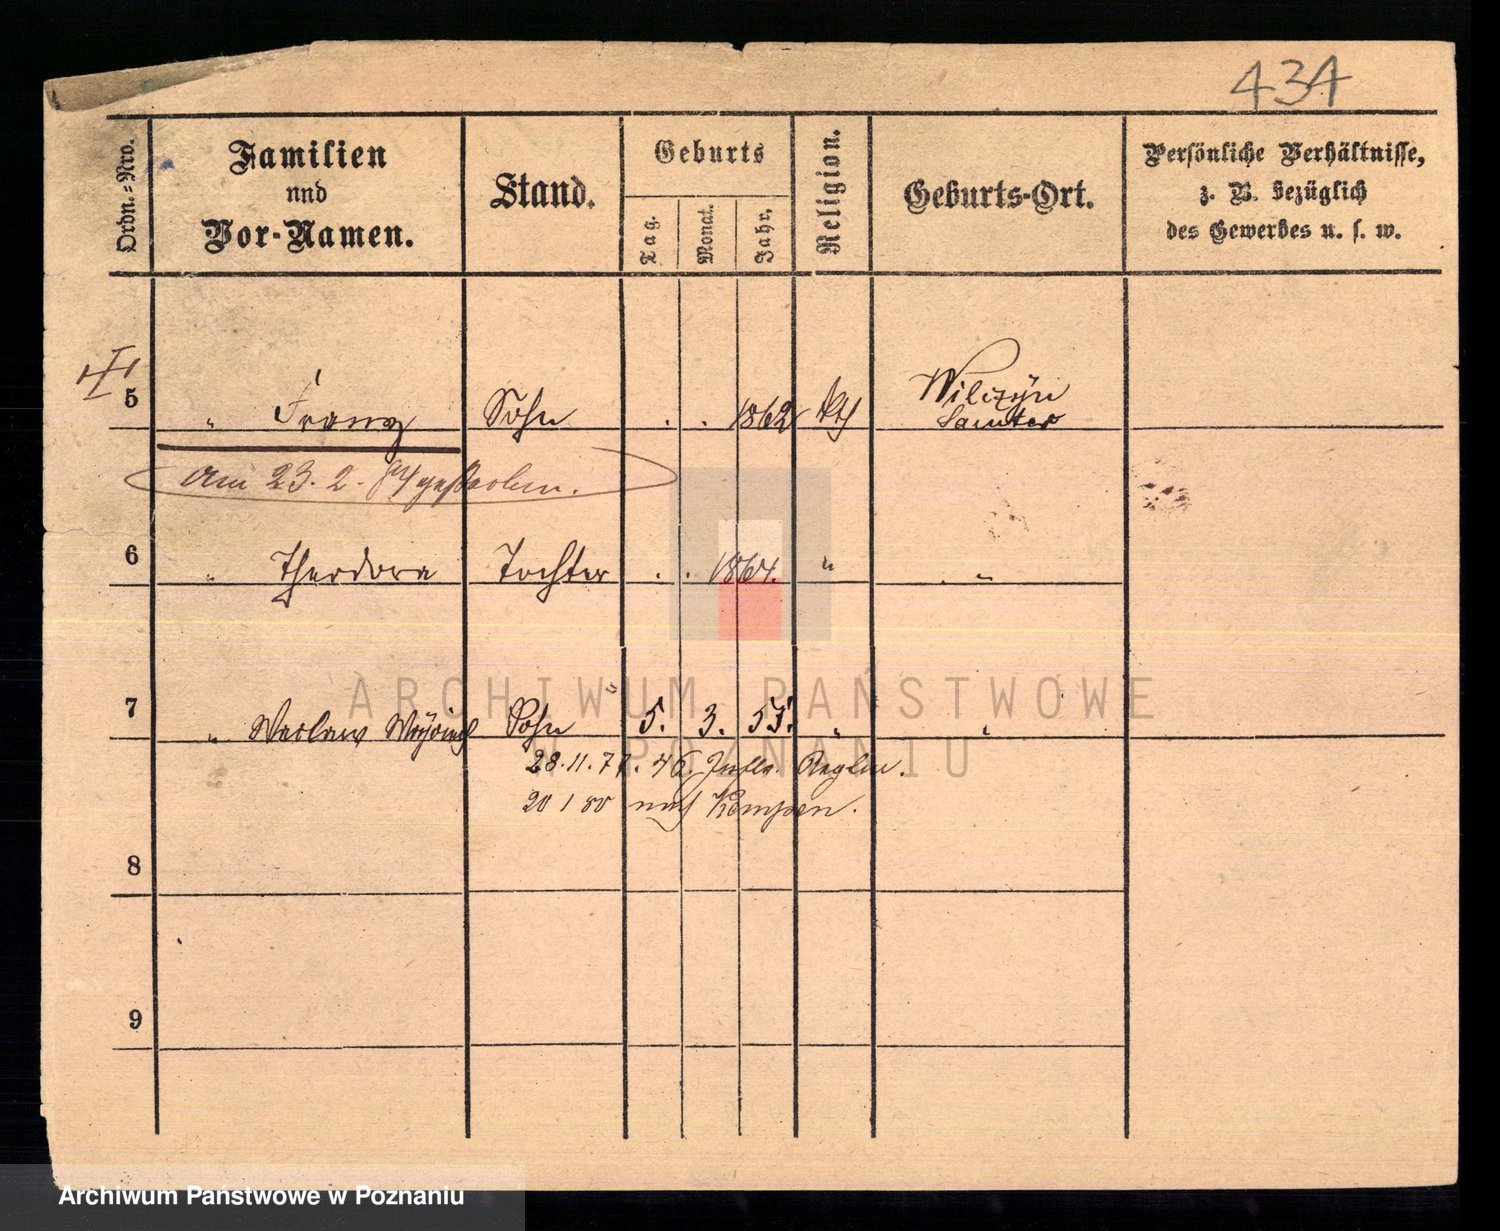 434
Ordn.-Nro.
Familien
und
Vor-Namen.
Stand.
Geburts
Tag.
Monat.
Jahr.
Religion.
Geburts-Ort.
Persönliche Verhältnisse,
z. B. bezüglich
des Gewerbes u. s. w.
5 " Franz Sohn . . 1862 kth Wilczyn
Samter
am 23. 2. 84 gestorben.
6 " Theodora Tochter . . 1864. " "
7 " Waclaw Sohn 5. 3. 57. " "
28.11.77. 46. Inftr. Regln.
20 1 80 nach Kempen.
8
9
ARCHIWUM PAŃSTWOWE
W POZNANIU
Archiwum Państwowe w Poznaniu